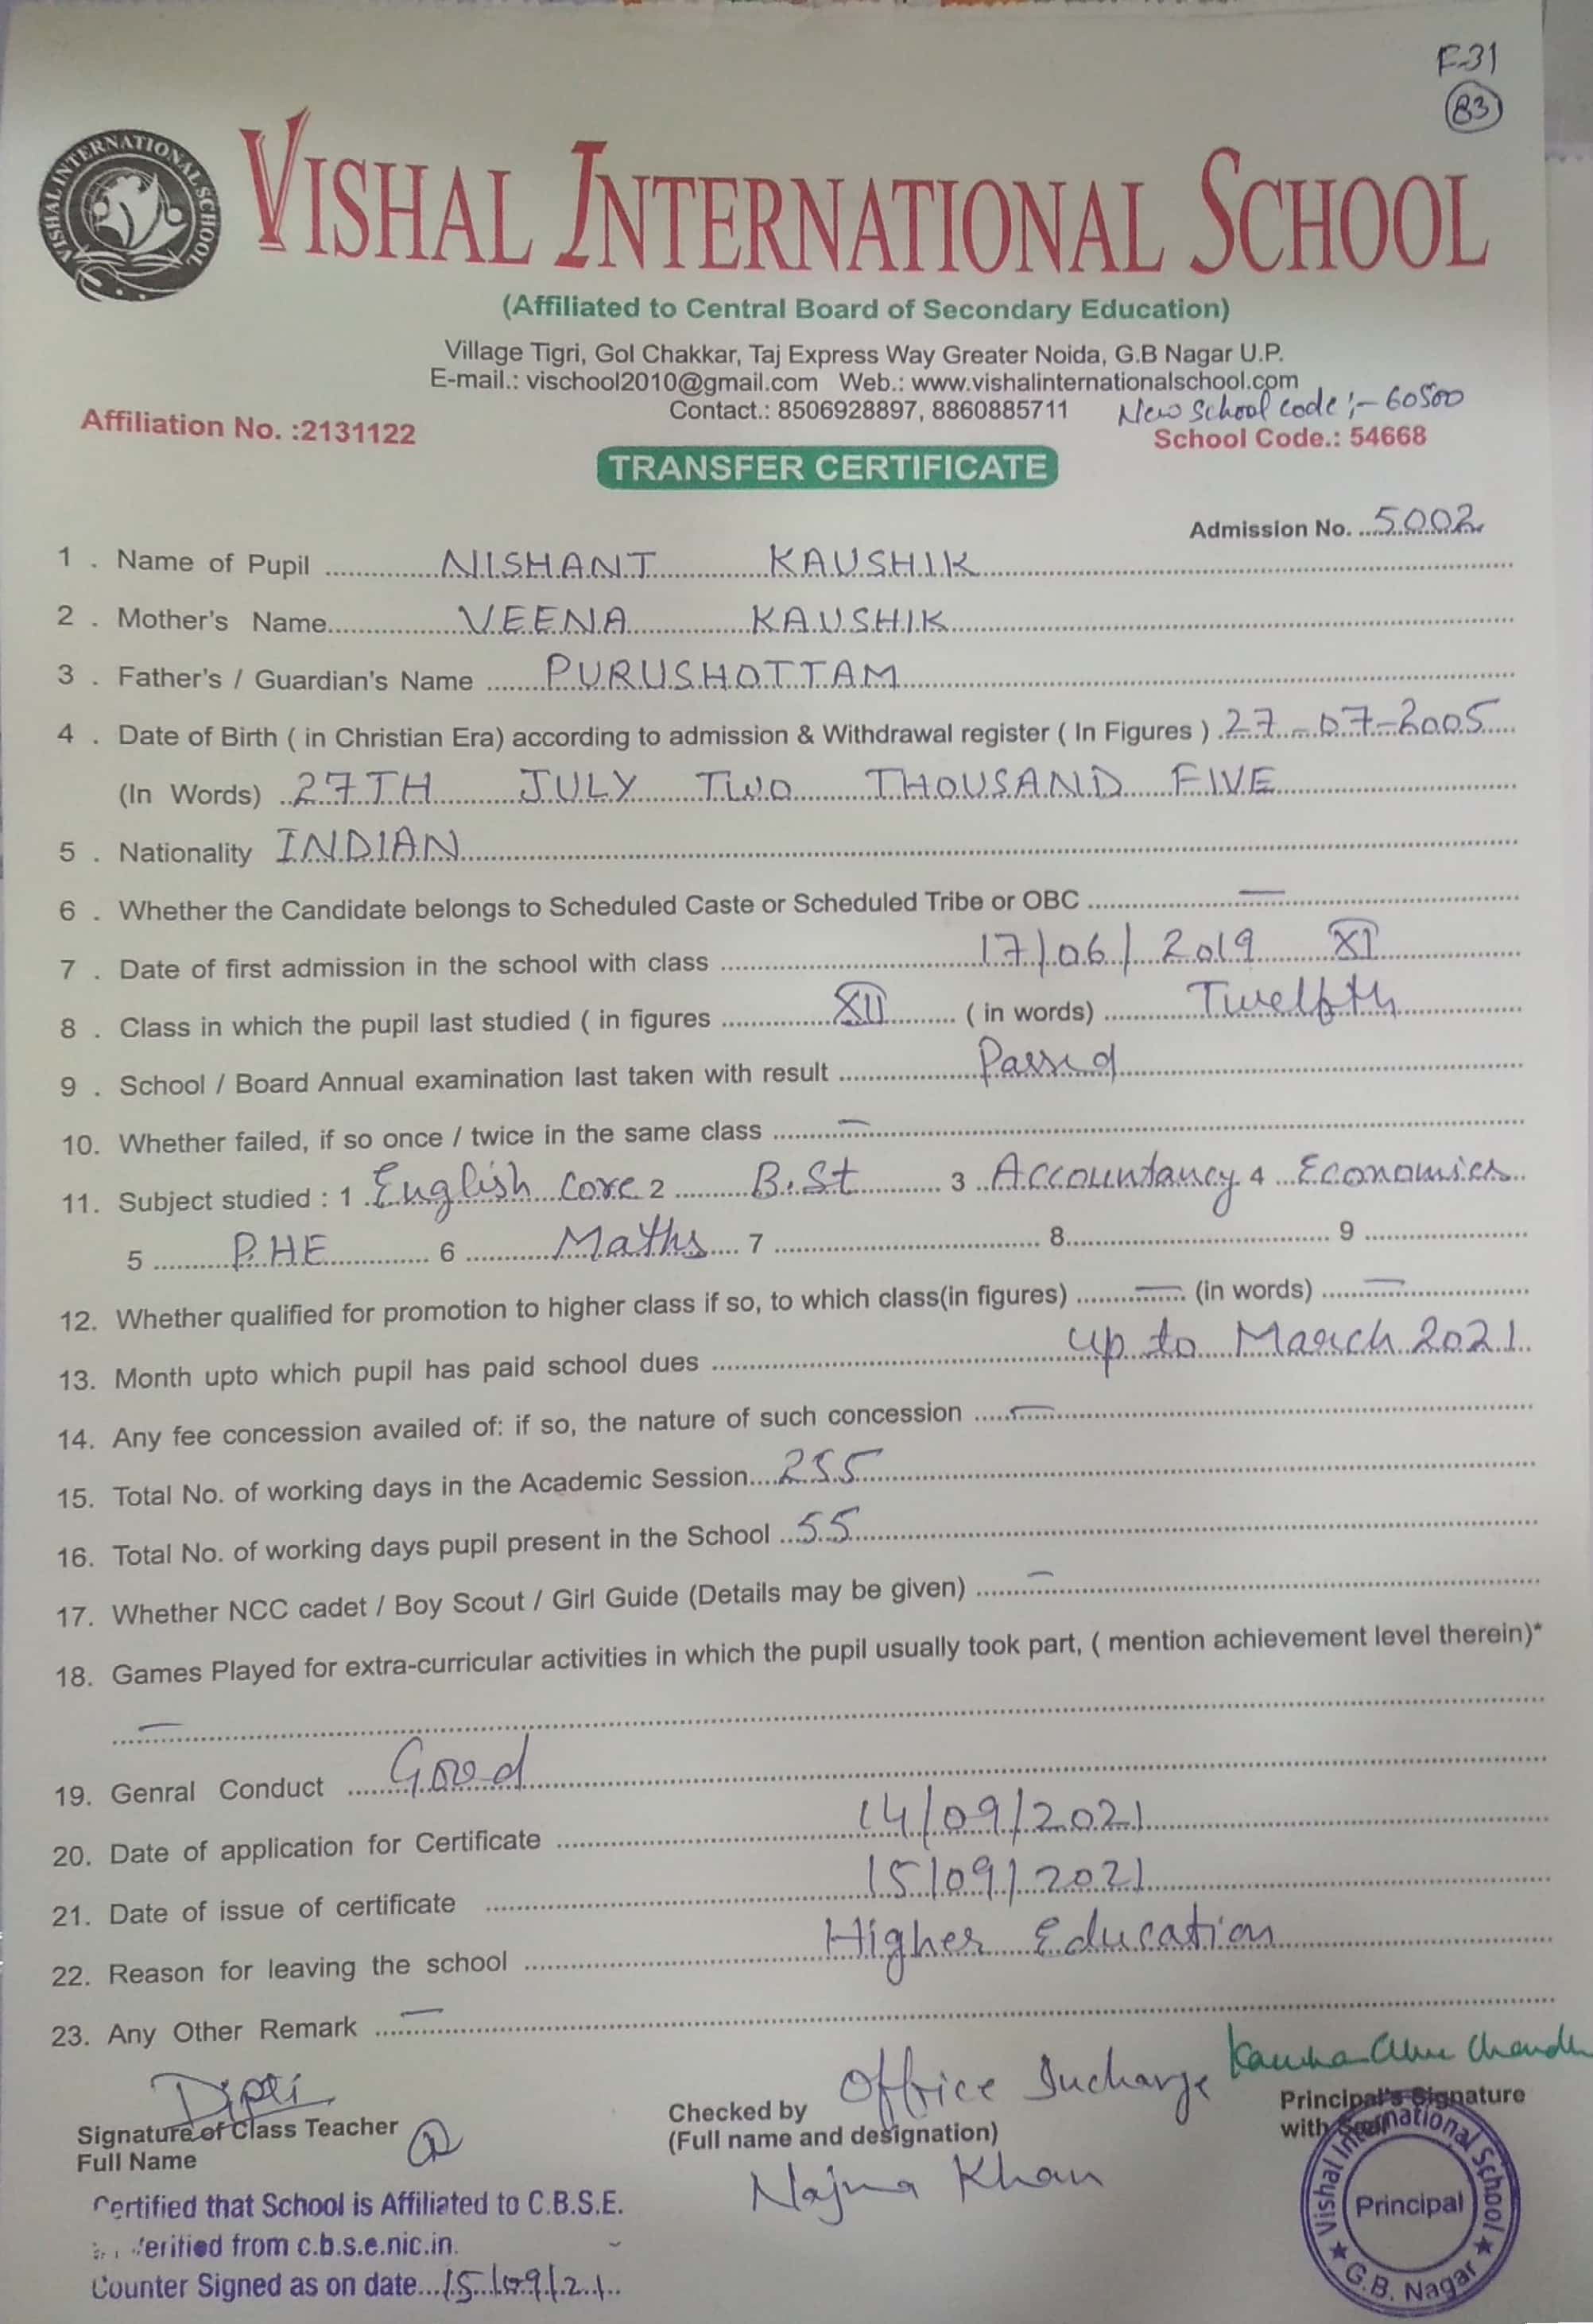 F-31
83
VISHAL INTERNATIONAL SCHOOL
VISHAL INTERNATIONAL SCHOOL
(Affiliated to Central Board of Secondary Education)
Village Tigri, Gol Chakkar, Taj Express Way Greater Noida, G.B Nagar U.P.
E-mail.: vischool2010@gmail.com Web.: www.vishalinternationalschool.com
Contact.: 8506928897, 8860885711 New School Code :- 60500
Affiliation No. :2131122 School Code.: 54668
TRANSFER CERTIFICATE
Admission No. 5002
1 . Name of Pupil NISHANT KAUSHIK
2 . Mother's Name VEENA KAUSHIK
3 . Father's / Guardian's Name PURUSHOTTAM
4 . Date of Birth ( in Christian Era) according to admission & Withdrawal register ( In Figures ) 27-07-2005
(In Words) 27TH JULY TWO THOUSAND FIVE
5 . Nationality INDIAN
6 . Whether the Candidate belongs to Scheduled Caste or Scheduled Tribe or OBC —
7 . Date of first admission in the school with class 17/06/2019 XI
8 . Class in which the pupil last studied ( in figures XII ( in words) Twelfth
9 . School / Board Annual examination last taken with result Passed
10. Whether failed, if so once / twice in the same class —
11. Subject studied : 1 English Core 2 B.St 3 Accountancy 4 Economics
5 P.HE 6 Maths 7 8 9
12. Whether qualified for promotion to higher class if so, to which class(in figures) — (in words) —
13. Month upto which pupil has paid school dues up to March 2021
14. Any fee concession availed of: if so, the nature of such concession —
15. Total No. of working days in the Academic Session 255
16. Total No. of working days pupil present in the School 55
17. Whether NCC cadet / Boy Scout / Girl Guide (Details may be given) —
18. Games Played for extra-curricular activities in which the pupil usually took part, ( mention achievement level therein)*
—
19. Genral Conduct Good
20. Date of application for Certificate 14/09/2021
21. Date of issue of certificate 15/09/2021
22. Reason for leaving the school Higher Education
23. Any Other Remark —
Dipti Office Incharge
Signature of Class Teacher Checked by Principal's Signature
Full Name (Full name and designation) with Seal
Najma Khan
Certified that School is Affiliated to C.B.S.E.
Verified from c.b.s.e.nic.in.
Counter Signed as on date 15/09/21
Vishal International School
Principal
G.B. Nagar